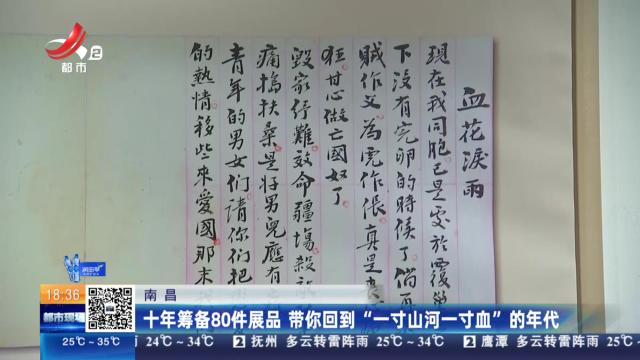 2
都市
血花淚雨
現在我同胞已是處於覆
下沒有完卵的時候了倘再
賊作父為虎作倀真是
狂甘心做亡國奴了
毀家紓難效命疆場殺
痛搗扶桑是好男兒應有
青年的男女們請你們把
的熱情移些來愛國那末
南昌
18:36
都市现场
十年筹备80件展品 带你回到“一寸山河一寸血”的年代
25℃~35℃ 雨 24℃~34℃ 2 抚州 多云转雷阵雨 25℃~34℃ 2 鹰潭 多云转雷阵雨 25℃~35℃